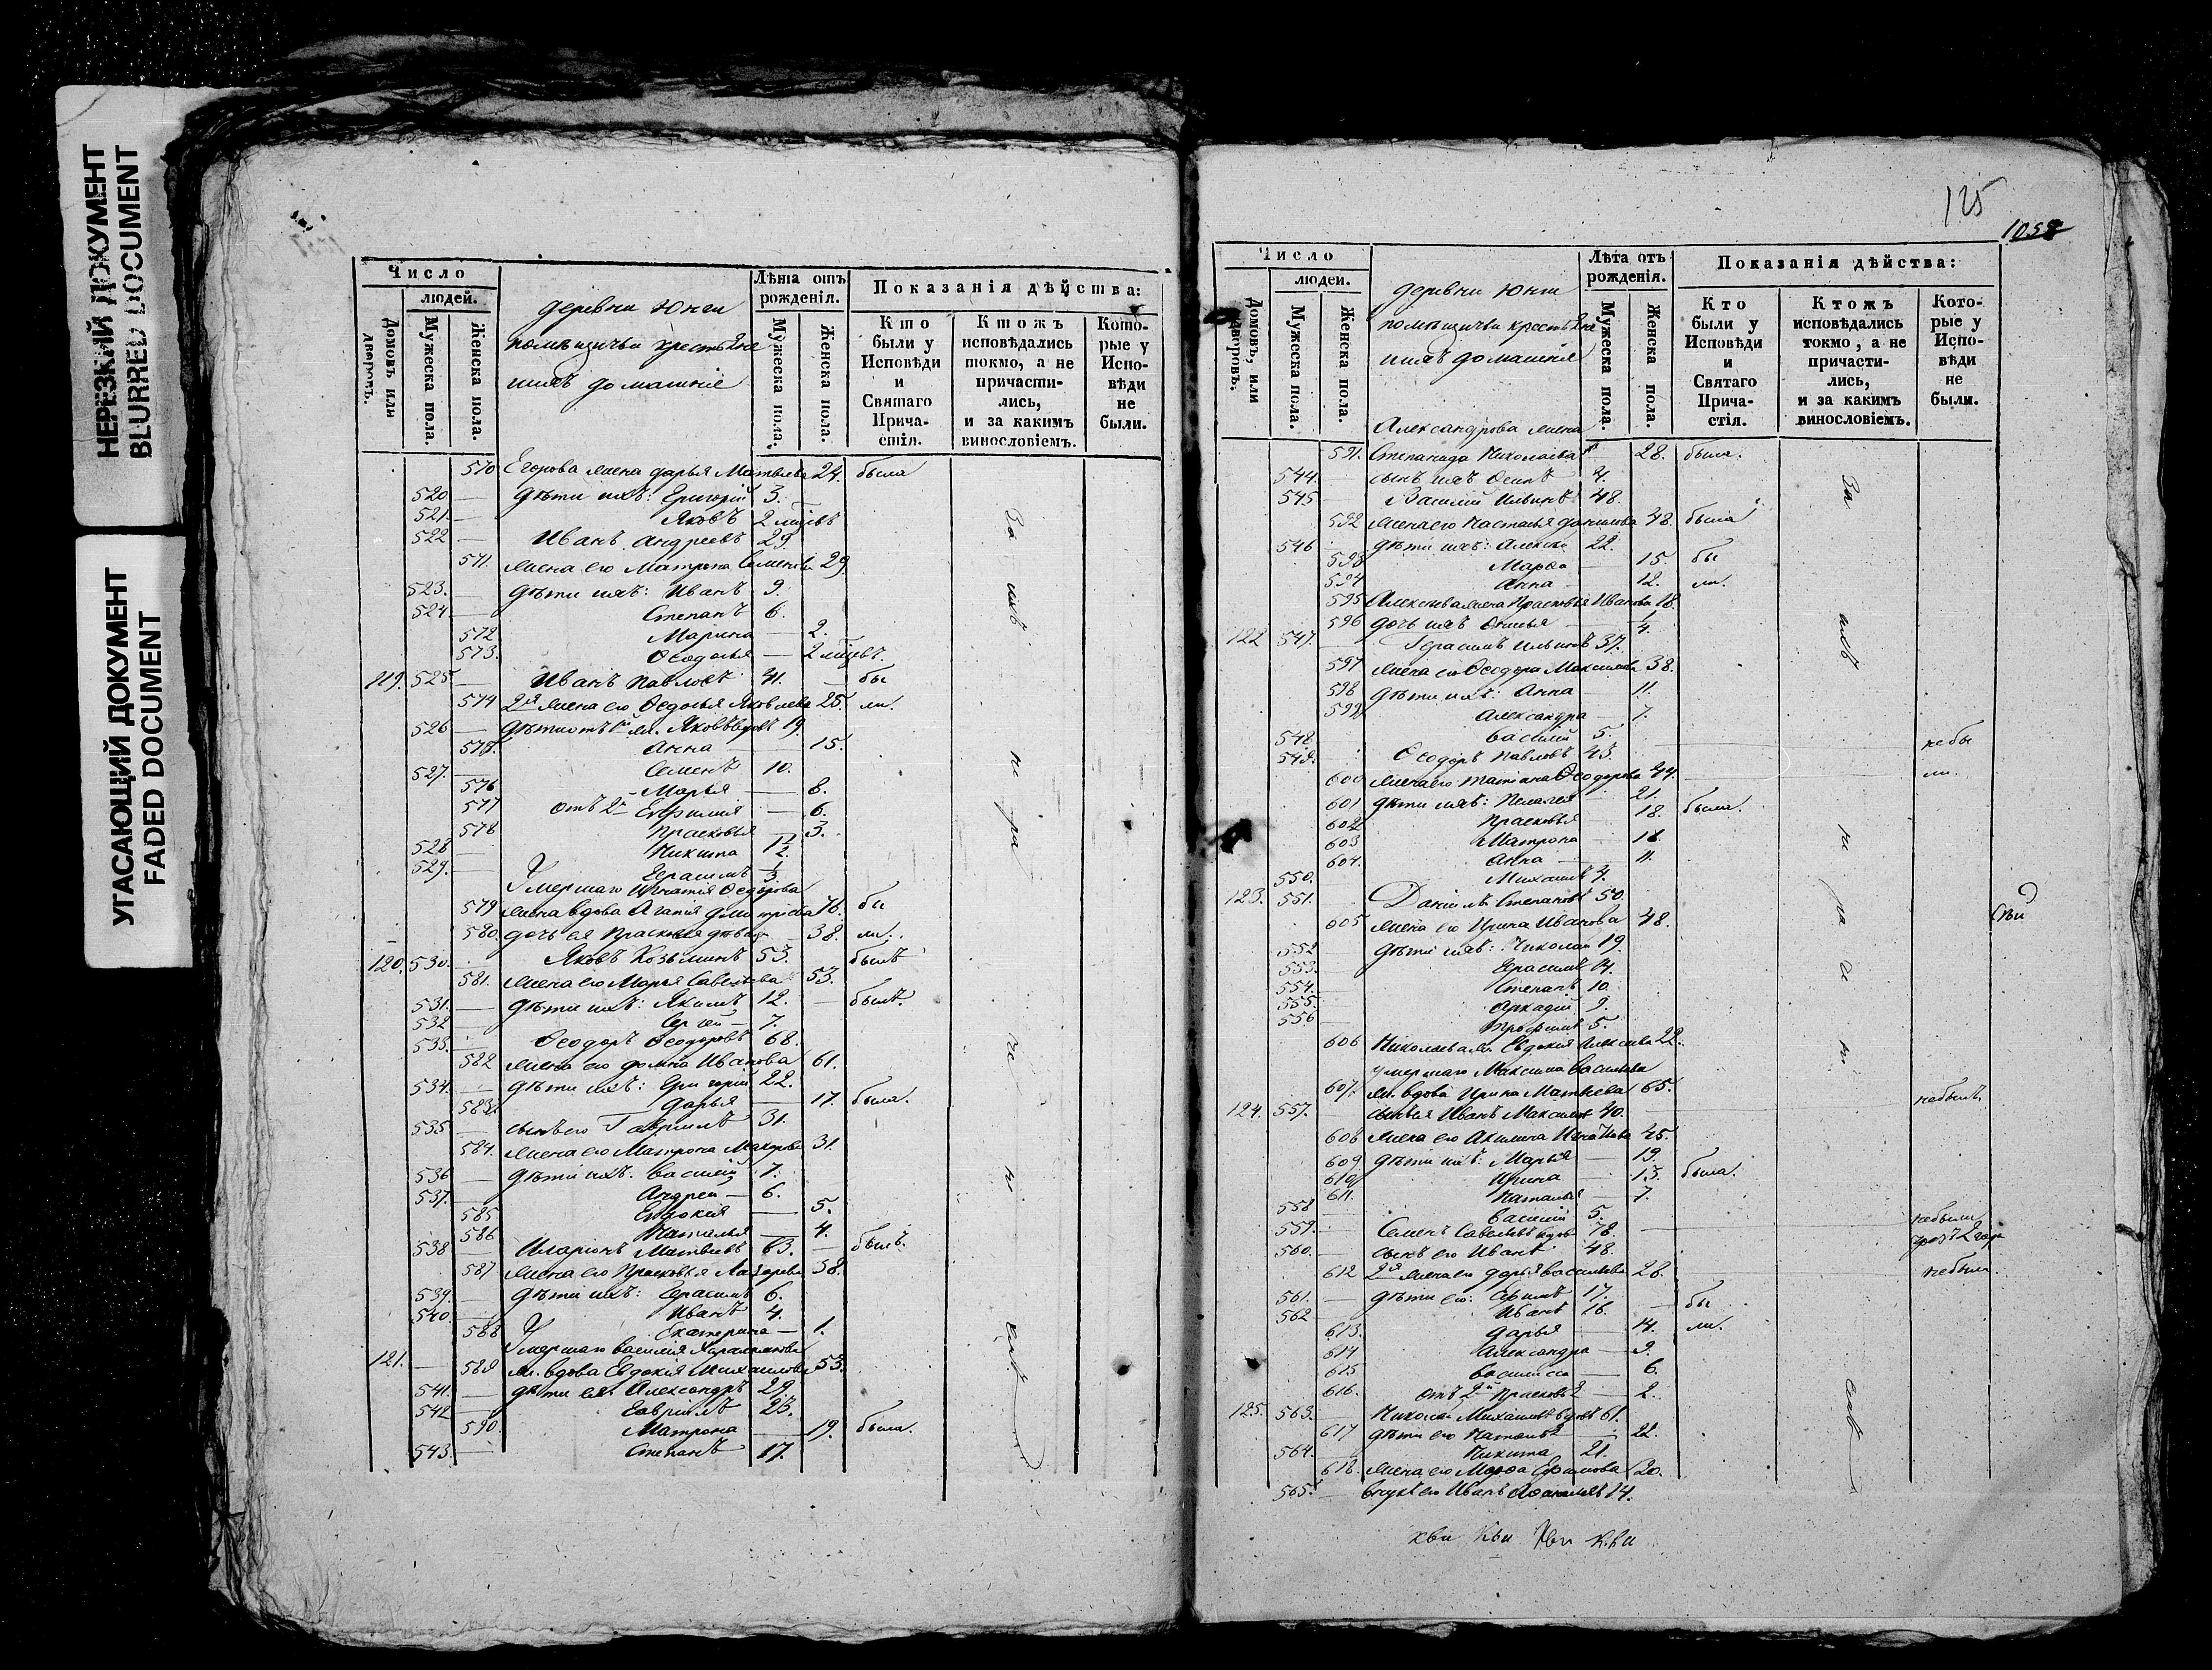 НЕРЕЗКИЙ ДОКУМЕНТ
BLURRED DOCUMENT
УГАСАЮЩИЙ ДОКУМЕНТ
FADED DOCUMENT
Число
людей.
Домовъ или дворовъ.
Мужеска пола.
Женска пола.
деревни Юнги
помѣщичьи крестьяне
и ихъ домашніе
Лѣта отъ рожденія.
Мужеска пола.
Женска пола.
Показанія дѣйства:
Кто были у Исповѣди и Святаго Причастія.
Ктожъ исповѣдались токмо, а не причастились, и за какимъ винословіемъ.
Которые у Исповѣди не были.
570 Егорова жена Дарья Матвѣева 24. была
520 дѣти ихъ: Григорій 3.
521 Яковъ 2 мцвъ
522 Иванъ Андреевъ 29.
571. жена его Матрона Семенова 29.
523. дѣти ихъ: Иванъ 9.
524 Степанъ 6.
572 Марина 2.
573. Ѳеодосья 2 мцвъ.
119. 525 Иванъ Павловъ 41. бы
574 2я жена его Ѳедосья Яковлева 25. ли.
526 дѣти отъ 1й ж. Яковъ вдовъ 19.
575. Анна 15.
527. Семенъ 10.
576 Марья 8.
577 отъ 2й Евфимія 6.
578 Прасковья 3.
528 Никита 12.
529. Герасимъ 3.
Умершаго Игнатія Ѳедорова
579 жена вдова Агапія Дмитріева 76. бы
580. дочь ея Прасковья дѣвка 38. ли.
120. 530. Яковъ Козьминъ 53. былъ
581. жена его Марья Савельева 53.
531. дѣти ихъ: Якимъ 12. былъ.
532 Сергей 7.
533. Ѳеодоръ Ѳеодоровъ 68.
582 жена его Домна Иванова 61.
534. дѣти ихъ: Григорій 22.
583. Дарья 17. была.
535 сынъ его Гавриилъ 31.
584. жена его Матрона Макарова 31
536 дѣти ихъ: Василій 7.
537. Андрей 6.
585 Евдокія 5.
586 Наталья 4.
538 Иларіонъ Матвѣевъ 63. былъ.
587 жена его Прасковья Лазарева 38.
539. дѣти ихъ: Герасимъ 6.
540. Иванъ 4.
588 Екатерина 1.
Умершаго Василія Харлампова
121. 589 ж. вдова Евдокія Михаилова 53.
541. дѣти ея: Александръ 29.
542 Гавриилъ 23.
590 Матрона 19. была.
543. Степанъ 17.
За ихъ не ра че ні емъ
125
1058
Число
людей.
Домовъ, или дворовъ.
Мужеска пола.
Женска пола.
деревни Юнги
помѣщичьи крестьяне
и ихъ домашніе
Лѣта отъ рожденія.
Мужеска пола.
Женска пола.
Показанія дѣйства:
Кто были у Исповѣди и Святаго Причастія.
Ктожъ исповѣдались токмо, а не причастились, и за каким винословіемъ.
Которые у Исповѣди не были.
Александрова жена
591. Степанида Николаева 28. была.
544. сынъ ихъ Осипъ 4.
545 Василій Ильинъ 48.
592 жена его Настасья Данилова 48. была
546 дѣти ихъ: Алексѣй 22.
593 Марфа 15. бы
594 Анна 12. ли.
595 Алексѣева жена Прасковья Иванова 18.
596 дочь ихъ
122 547. Герасимъ Ильинъ 37.
597 жена его Ѳеодора Максимова 38.
598 дѣти ихъ: Анна 11.
599 Александра 7.
548 Василій 5.
549. Ѳеодоръ Павловъ 43. небы
600 жена его Татіана Ѳеодорова 44. ли.
601 дѣти ихъ: Пелагея 21.
602 Прасковья 18. была.
603 Матрона 16.
604. Анна 11.
550. Михаилъ 4.
123. 551. Даніилъ Степановъ 50.
605 жена его Ирина Иванова 48.
552 дѣти ихъ: Николай 19.
553. Герасимъ 14.
554. Степанъ 10.
555. Аркадій 9.
556 Трофимъ 5.
606 Николаева ж. Евдокія Алексѣева 22.
умершаго Максима Васильева
607. ж. вдова Ирина Матвѣева 65.
124. 557. сынъ ея Иванъ Максимовъ 40. небылъ.
608 жена его Акилина 45.
609 дѣти ихъ: Марья 19.
610 Ирина 13. была.
611. Наталья 7.
558 Василій 5.
559. Семенъ Савельевъ вдовъ 78. небыли
560. сынъ его Иванъ 48.
612 2я жена его Дарья Васильева 28. небыла.
561. дѣти его: Ефимъ 17.
562 Иванъ 16. бы
613. Дарья 14. ли.
614 Александра 9.
615 Василиса 6.
616. отъ 2й Прасковья 2.
125. 563. Николай Михаиловъ вдовъ 61.
617 дѣти его Наталья 22.
564. Никита 21.
618. жена его Марфа Ефимова 20.
565. внукъ его Иванъ 14.
За ихъ не ра че ні емъ